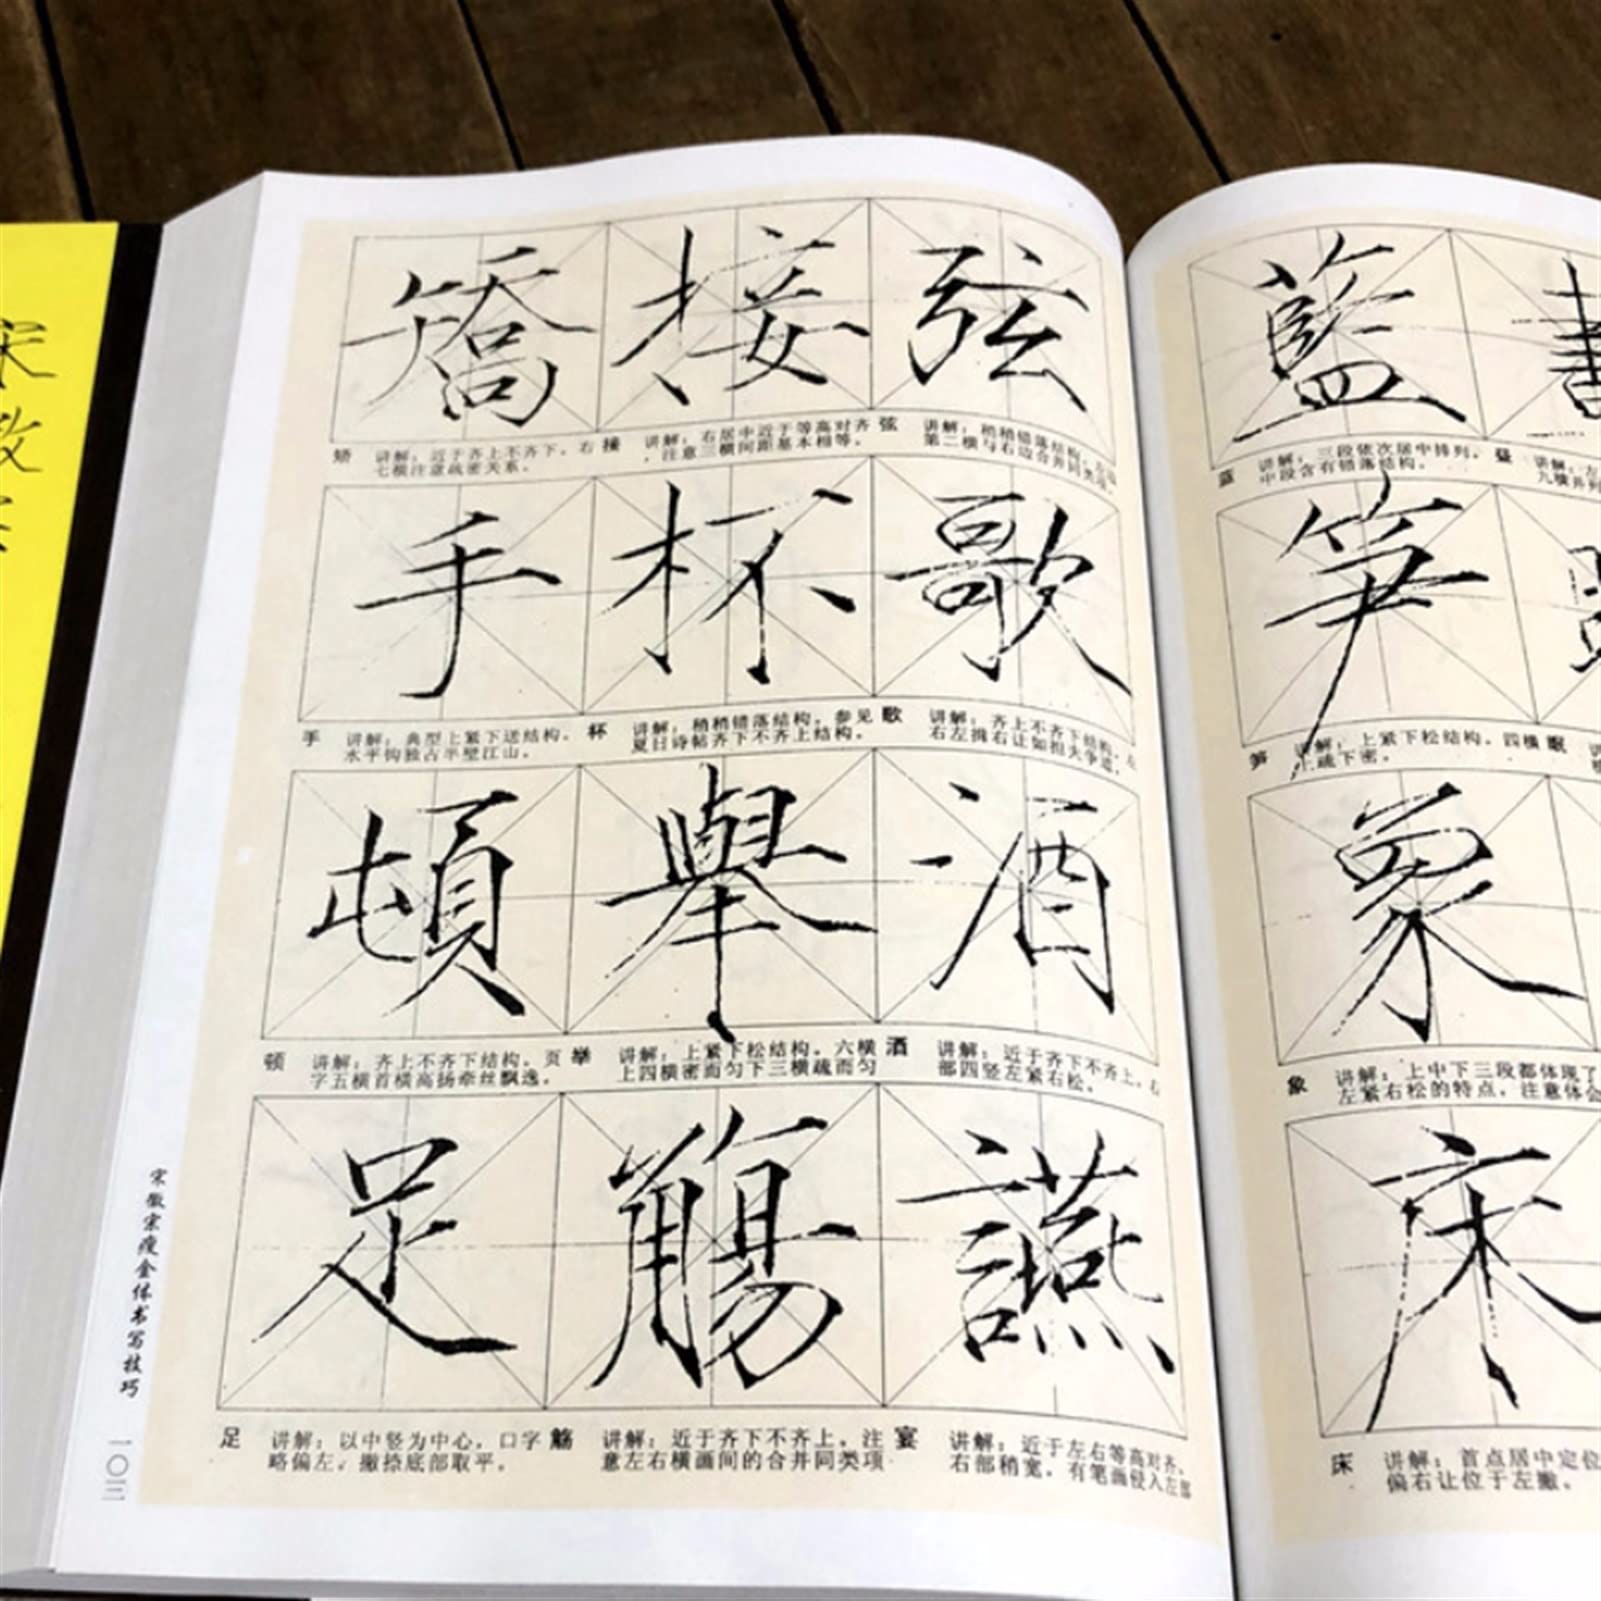 矯 接 弦
矫 讲解：近于齐上不齐下。右
七横注意疏密关系。
接 讲解：右居中近于等高对齐
，注意三横间距基本相等。
弦 讲解：稍稍错落结构。
第二横与右边合并同类项。
手 杯 歌
手 讲解：典型上紧下送结构。
水平钩独占半壁江山。
杯 讲解：稍稍错落结构。参见
夏日诗帖齐下不齐上结构。
歌 讲解：齐上不齐下结构。左
右左揖右让如担夫争道。
頓 舉 酒
顿 讲解：齐上不齐下结构。页
字五横首横高扬牵丝飘逸。
举 讲解：上紧下松结构。六横
上四横密而匀下三横疏而匀
酒 讲解：近于齐下不齐上。右
部四竖左紧右松。
足 觴 讌
足 讲解：以中竖为中心，口字
略偏左。撇捺底部取平。
觞 讲解：近于齐下不齐上。注
意左右横画间的合并同类项
宴 讲解：近于左右等高对齐。
右部稍宽。有笔画侵入左部
宋徽宗瘦金体书写技巧
一〇二
藍
蓝 讲解：三段依次居中排列。
中段含有错落结构。
昼 讲解：左
九横并列
笋
笋 讲解：上紧下松结构。四横
上疏下密。
眠
象
象 讲解：上中下三段都体现了
左紧右松的特点，注意体会
床
床 讲解：首点居中定位
偏右让位于左撇。